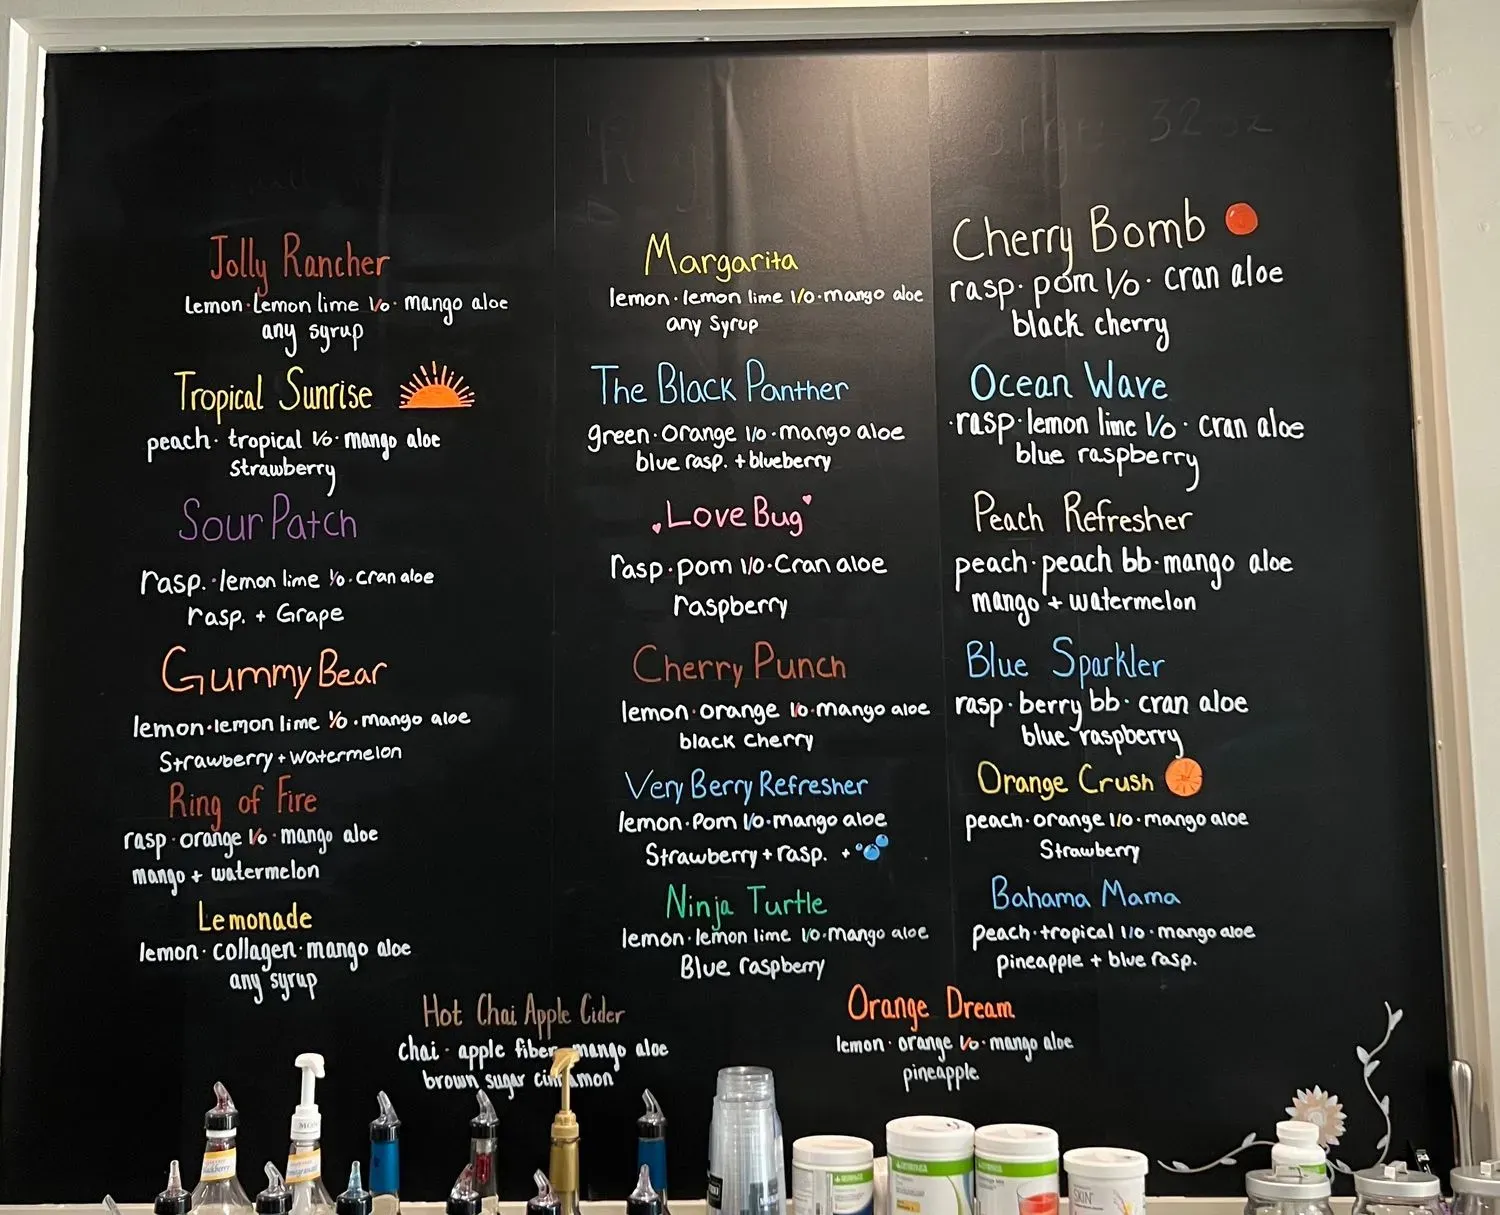 Jolly Rancher
lemon · lemon lime 1/0 · mango aloe
any syrup
Tropical Sunrise
peach · tropical 1/0 · mango aloe
Strawberry
Sour Patch
rasp. · lemon lime 1/0 · cran aloe
rasp. + Grape
Gummy Bear
lemon · lemon lime 1/0 · mango aloe
Strawberry + watermelon
Ring of Fire
rasp · orange 1/0 · mango aloe
mango + watermelon
Lemonade
lemon · collagen · mango aloe
any syrup
Margarita
lemon · lemon lime 1/0 · mango aloe
any Syrup
The Black Panther
green · orange 1/0 · mango aloe
blue rasp. + blueberry
Love Bug
rasp · pom 1/0 · Cran aloe
raspberry
Cherry Punch
lemon · orange 1/0 · mango aloe
black cherry
Very Berry Refresher
lemon · Pom 1/0 · mango aloe
Strawberry + rasp. +
Ninja Turtle
lemon · lemon lime 1/0 · mango aloe
Blue raspberry
32 oz
Cherry Bomb
rasp · pom 1/0 · cran aloe
black cherry
Ocean Wave
· rasp · lemon lime 1/0 · cran aloe
blue raspberry
Peach Refresher
peach · peach bb · mango aloe
mango + watermelon
Blue Sparkler
rasp · berry bb · cran aloe
blue raspberry
Orange Crush
peach · orange 1/0 · mango aloe
Strawberry
Bahama Mama
peach · tropical 1/0 · mango aloe
pineapple + blue rasp.
Hot Chai Apple Cider
chai · apple fiber · mango aloe
brown sugar cinnamon
Orange Dream
lemon · orange 1/0 · mango aloe
pineapple
SKIN